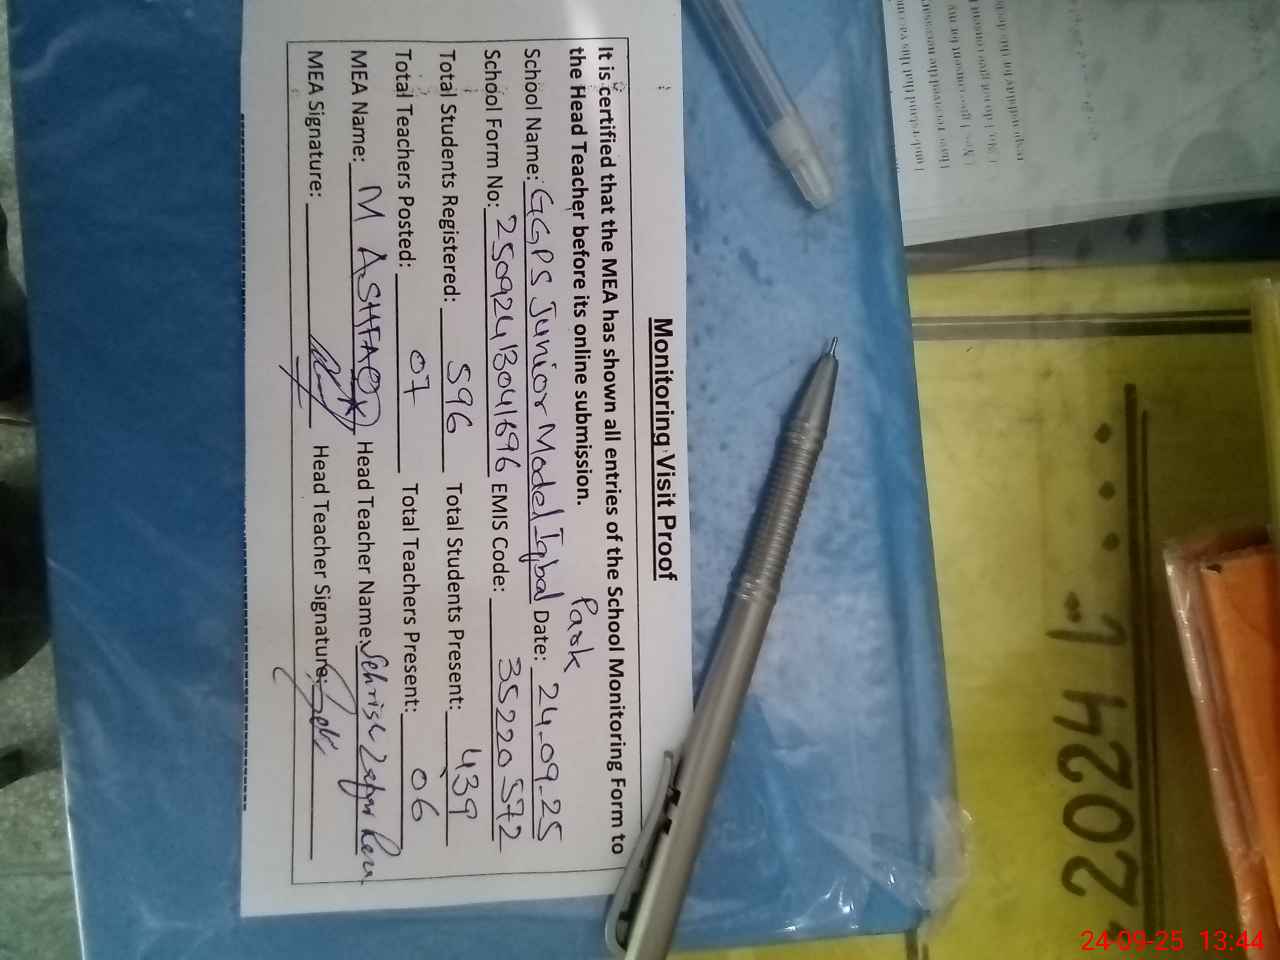 Monitoring Visit Proof
It is certified that the MEA has shown all entries of the School Monitoring Form to
the Head Teacher before its online submission.
Park
School Name: GGPS Junior Model Iqbal Date: 24-09-25
School Form No: 25092413041696 EMIS Code: 35220572
Total Students Registered: 596 Total Students Present: 439
Total Teachers Posted: 07 Total Teachers Present: 06
MEA Name: M ASHFAQ Head Teacher Name: Sehrish Zafar
MEA Signature: Head Teacher Signature:
2024
24-09-25 13:44